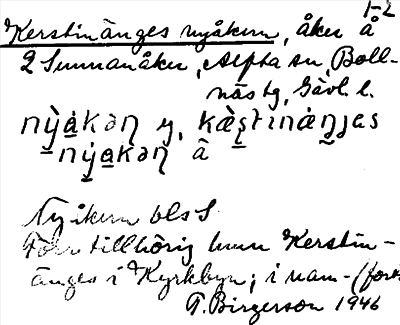 1-2
Kerstinänges nyåkern, åker å
2 Sunnanåker, Alfta sn, Boll-
näs tg, Gävl. l.
nỳa̱kəɳ y, kæ̀ʂtinæŋjəs
nýa̱kəɳ â
Nyåkern bls 1
Förr tillhörig hem Kerstin-
änges i Kyrkbyn; i nam- (forts
T. Birgerson 1946